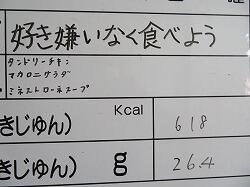 好き嫌いなく食べよう
タンドリーチキン
マカロニサラダ
ミネストローネスープ
Kcal
きじゅん) 618
きじゅん) g 26.4